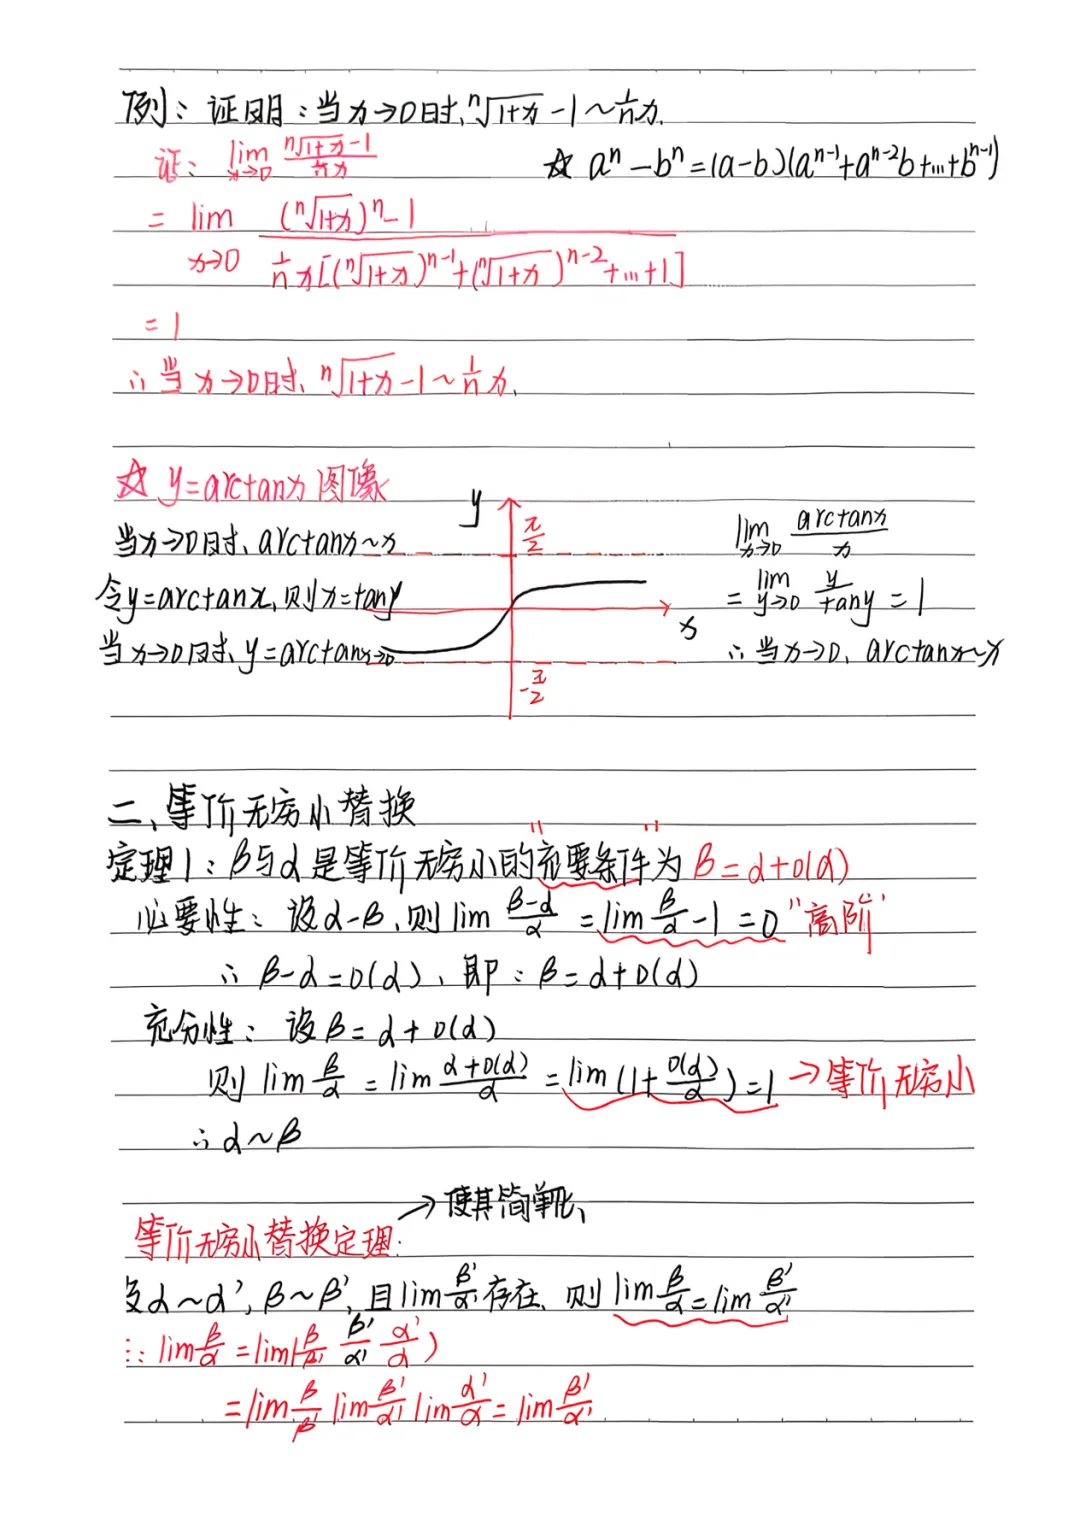 例：证明：当x→0时、ⁿ√(1+x) -1～1/n x.
证： lim x→0 (ⁿ√(1+x) -1)/(1/n x)
☆ aⁿ-bⁿ=(a-b)(aⁿ⁻¹+aⁿ⁻²b+…+bⁿ⁻¹)
= lim x→0 ((ⁿ√(1+x))ⁿ-1)/(1/n x[(ⁿ√(1+x))ⁿ⁻¹+(ⁿ√(1+x))ⁿ⁻²+…+1])
=1
∴当x→0时、ⁿ√(1+x) -1～1/n x.
☆ y=arctanx 图像
当x→0时、arctanx～x
令y=arctanx,则x=tany
当x→0时、y=arctanx→0
y
π/2
x
-π/2
lim x→0 arctanx/x
= lim y→0 y/tany =1
∴当x→0、arctanx～x
二、等价无穷小替换
定理1：β与α是等价无穷小的"充要条件"为 β=α+o(α)
必要性：设α～β,则lim (β-α)/α =lim β/α -1=0 "高阶"
∴β-α=o(α)、即：β=α+o(α)
充分性：设β=α+o(α)
则lim β/α =lim (α+o(α))/α =lim(1+ o(α)/α)=1 →等价无穷小
∴α～β
→使其简单化、
等价无穷小替换定理：
设α～α′,β～β′,且lim β′/α′存在、则lim β/α=lim β′/α′
证：lim β/α =lim(β/β′ β′/α′ α′/α)
=lim β/β′ lim β′/α′ lim α′/α= lim β′/α′